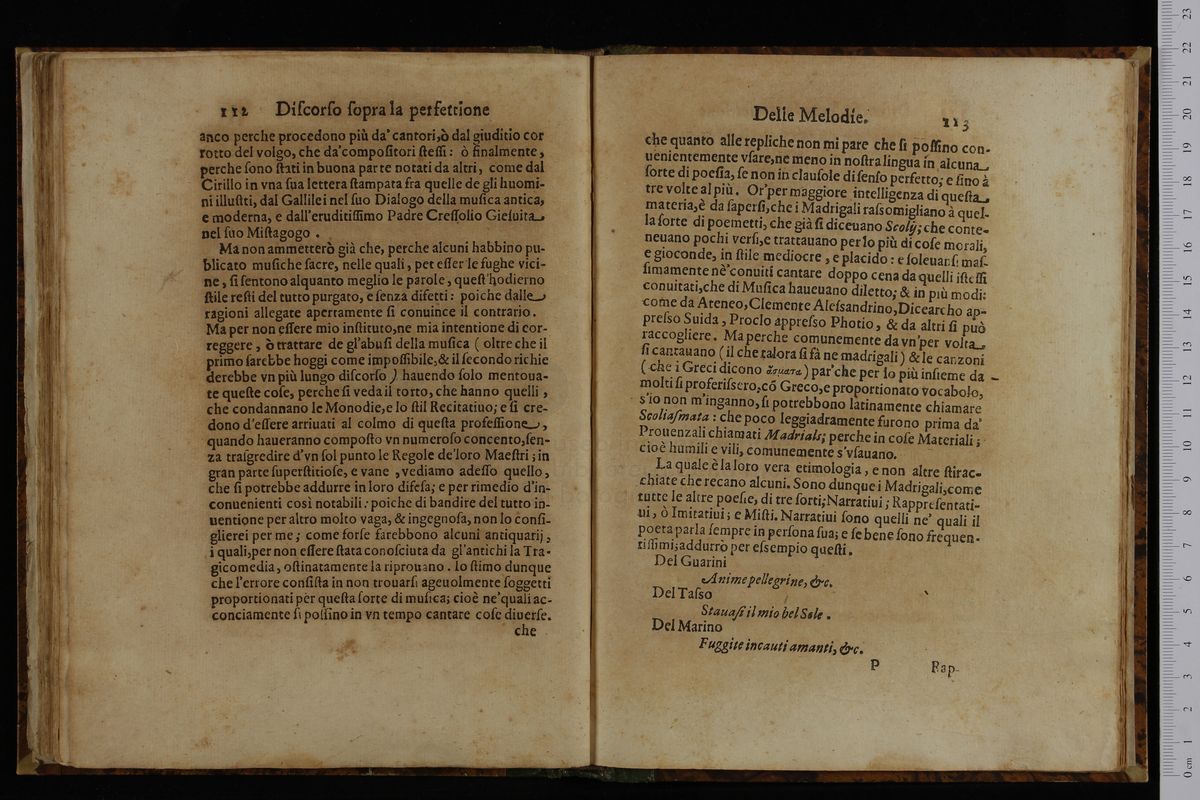 112 Diſcorſo ſopra la perfettione
anco perche procedono più da' cantori,ò dal giuditio cor
rotto del volgo, che da'compoſitori ſteſſi : ò finalmente,
perche ſono ſtati in buona parte notati da altri, come dal
Cirillo in vna ſua lettera ſtampata fra quelle de gli huomi-
ni illuſtri, dal Gallilei nel ſuo Dialogo della muſica antica,
e moderna, e dall'eruditiſſimo Padre Creſſolio Gieſuita
nel ſuo Miſtagogo .
Ma non ammetterò già che, perche alcuni habbino pu-
blicato muſiche ſacre, nelle quali, per eſſer le fughe vici-
ne, ſi ſentono alquanto meglio le parole, queſt'hodierno
ſtile reſti del tutto purgato, e ſenza difetti : poiche dalle
ragioni allegate apertamente ſi conuince il contrario.
Ma per non eſſere mio inſtituto,ne mia intentione di cor-
reggere , ò trattare de gl'abuſi della muſica ( oltre che il
primo ſarebbe hoggi come impoſſibile,& il ſecondo richie
derebbe vn più lungo diſcorſo ) hauendo ſolo mentoua-
te queſte coſe, perche ſi veda il torto, che hanno quelli ,
che condannano le Monodie,e lo ſtil Recitatiuo; e ſi cre-
dono d'eſſere arriuati al colmo di queſta profeſſione ,
quando haueranno compoſto vn numeroſo concento,ſen-
za traſgredire d'vn ſol punto le Regole de'loro Maeſtri ; in
gran parte ſuperſtitioſe, e vane , vediamo adeſſo quello ,
che ſi potrebbe addurre in loro difeſa; e per rimedio d'in-
conuenienti così notabili : poiche di bandire del tutto in-
uentione per altro molto vaga, & ingegnoſa, non lo conſi-
glierei per me ; come forſe farebbono alcuni antiquarij ,
i quali,per non eſſere ſtata conoſciuta da gl'antichi la Tra-
gicomedia, oſtinatamente la riprouano . Io ſtimo dunque
che l'errore conſiſta in non trouarſi ageuolmente ſoggetti
proportionati per queſta ſorte di muſica; cioè ne'quali ac-
conciamente ſi poſſino in vn tempo cantare coſe diuerſe.
che
Delle Melodie. 113
che quanto alle repliche non mi pare che ſi poſſino con-
uenientemente vſare,ne meno in noſtra lingua in alcuna
ſorte di poeſia, ſe non in clauſole di ſenſo perfetto; e ſino à
tre volte al più . Or'per maggiore intelligenza di queſta
materia,è da ſaperſi,che i Madrigali raſsomigliano à quel-
la ſorte di poemetti, che già ſi diceuano Scolij; che conte-
neuano pochi verſi,e trattauano per lo più di coſe morali,
e gioconde, in ſtile mediocre , e placido : e ſoleuanſi maſ-
ſimamente nè'conuiti cantare doppo cena da quelli iſteſſi
conuitati,che di Muſica haueuano diletto; & in più modi:
come da Ateneo,Clemente Aleſsandrino,Dicearcho ap-
preſso Suida , Proclo appreſso Photio , & da altri ſi può
raccogliere. Ma perche comunemente da vn'per volta
ſi cantauano ( il che talora ſi fà ne madrigali ) & le canzoni
( che i Greci dicono ᾄσματα ) par'che per lo più inſieme da
molti ſi proferiſsero,cō Greco,e proportionato vocabolo,
s'io non m'inganno,ſi potrebbono latinamente chiamare
Scoliaſmata : che poco leggiadramente furono prima da'
Prouenzali chiamati Madrials; perche in coſe Materiali ;
cioè humili e vili, comunemente s'vſauano.
La quale è la loro vera etimologia , e non altre ſtirac-
chiate che recano alcuni. Sono dunque i Madrigali,come
tutte le altre poeſie, di tre ſorti;Narratiui ; Rappreſentati-
ui , ò Imitatiui ; e Miſti. Narratiui ſono quelli ne' quali il
poeta parla ſempre in perſona ſua; e ſe bene ſono frequen-
tiſſimi;addurrò per eſsempio queſti .
Del Guarini
Anime pellegrine, &c.
Del Taſso
Stauaſi il mio bel Sole .
Del Marino
Fuggite incauti amanti, &c.
P Rap-
0 cm 1 2 3 4 5 6 7 8 9 10 11 12 13 14 15 16 17 18 19 20 21 22 23